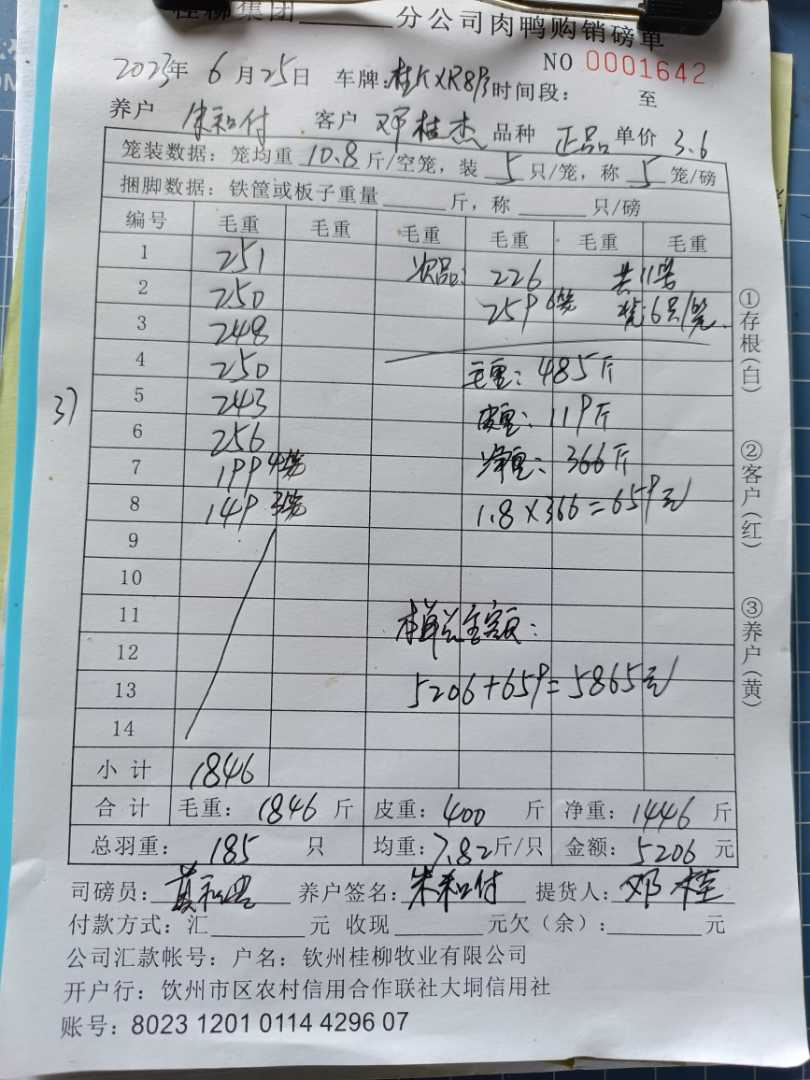 桂柳集团 分公司肉鸭购销磅单
NO 0001642
2023年 6月25日 车牌: 时间段: 至
养户 朱和付 客户 邓桂杰 品种 正品 单价 3.6
笼装数据: 笼均重 10.8 斤/空笼, 装 5 只/笼, 称 5 笼/磅
捆脚数据: 铁筐或板子重量 斤, 称 只/磅
编号 毛重 毛重 毛重 毛重 毛重 毛重
1 251 次品: 226 共11笼
2 250 259 6笼 装:6只/笼.
3 248
4 250 毛重: 485斤
5 243 皮重: 119斤
6 256 净重: 366斤
7 199 4笼
8 149 3笼 1.8×366=659元
9
10
11 本单总金额:
12
13 5206+659=5865元
14
37
小计 1846
合计 毛重: 1846 斤 皮重: 400 斤 净重: 1446 斤
总羽重: 185 只 均重: 7.82斤/只 金额: 5206 元
司磅员: 养户签名: 朱和付 提货人: 邓桂
付款方式: 汇 元 收现 元欠(余): 元
公司汇款帐号: 户名: 钦州桂柳牧业有限公司
开户行: 饮州市区农村信用合作联社大垌信用社
账号: 8023 1201 0114 4296 07
①存根(白)
②客户(红)
③养户(黄)